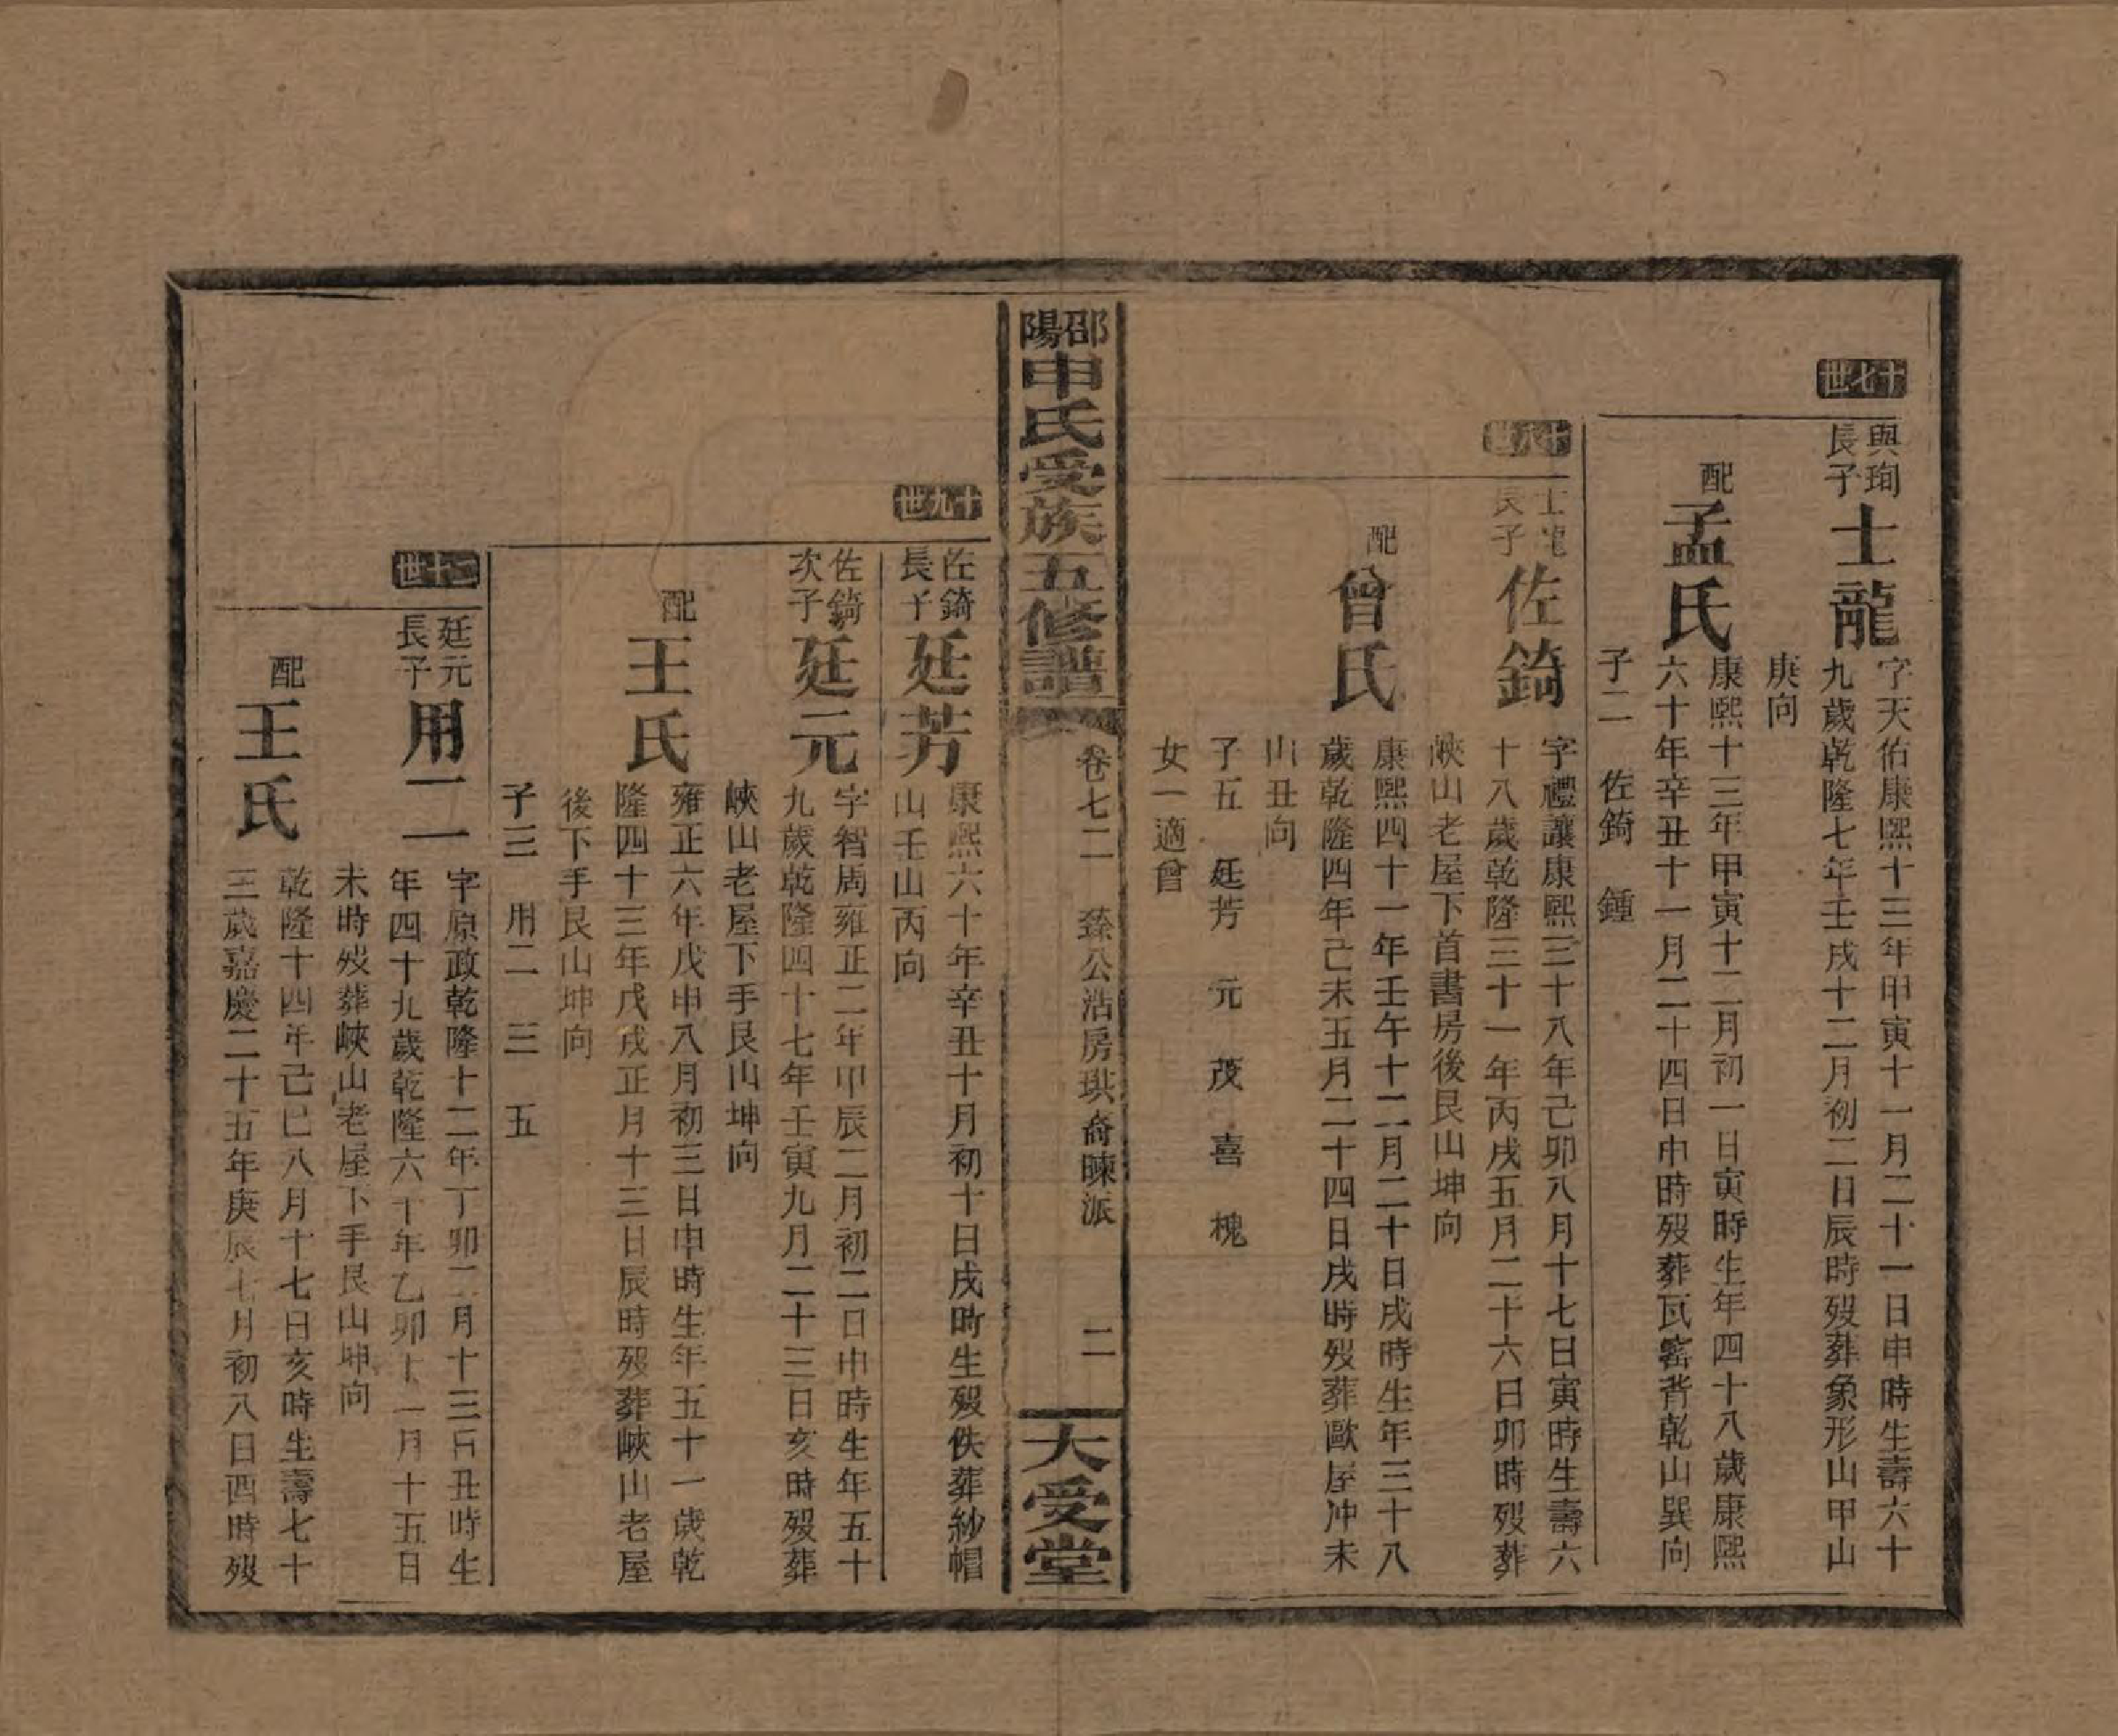 十七世
與珣
長子
士龍
字天佑康熙十三年甲寅十一月二十一日申時生壽六十
九歲乾隆七年壬戌十二月初二日辰時歿葬象形山甲山
庚向
配
孟氏
康熙十三年甲寅十二月初一日寅時生年四十八歲康熙
六十年辛丑十一月二十四日申時歿葬瓦窰背乾山巽向
子二 佐錡 鍾
十八世
士龍
長子
佐錡
字禮讓康熙三十八年己卯八月十七日寅時生壽六
十八歲乾隆三十一年丙戌五月二十六日卯時歿葬
峽山老屋下首書房後艮山坤向
配
曾氏
康熙四十一年壬午十二月二十日戌時生年三十八
歲乾隆四年己未五月二十四日戌時歿葬歐屋冲未
山丑向
子五 廷芳 元 茂 喜 槐
女一適曾
邵陽申氏受族五修譜
卷七二 臻公浩房珙裔暕派 二
大受堂
十九世
佐錡
長子
廷芳
康熙六十年辛丑十月初十日戌時生歿佚葬紗帽
山壬山丙向
佐錡
次子
廷元
字智周雍正二年甲辰二月初二日申時生年五十
九歲乾隆四十七年壬寅九月二十三日亥時歿葬
峽山老屋下手艮山坤向
配
王氏
雍正六年戊申八月初三日申時生年五十一歲乾
隆四十三年戊戌正月十三日辰時歿葬峽山老屋
後下手艮山坤向
子三 用二 三 五
二十世
廷元
長子
用二
字原政乾隆十二年丁卯二月十三日丑時生
年四十九歲乾隆六十年乙卯十一月十五日
未時歿葬峽山老屋下手艮山坤向
配
王氏
乾隆十四年己巳八月十七日亥時生壽七十
三歲嘉慶二十五年庚辰七月初八日酉時歿